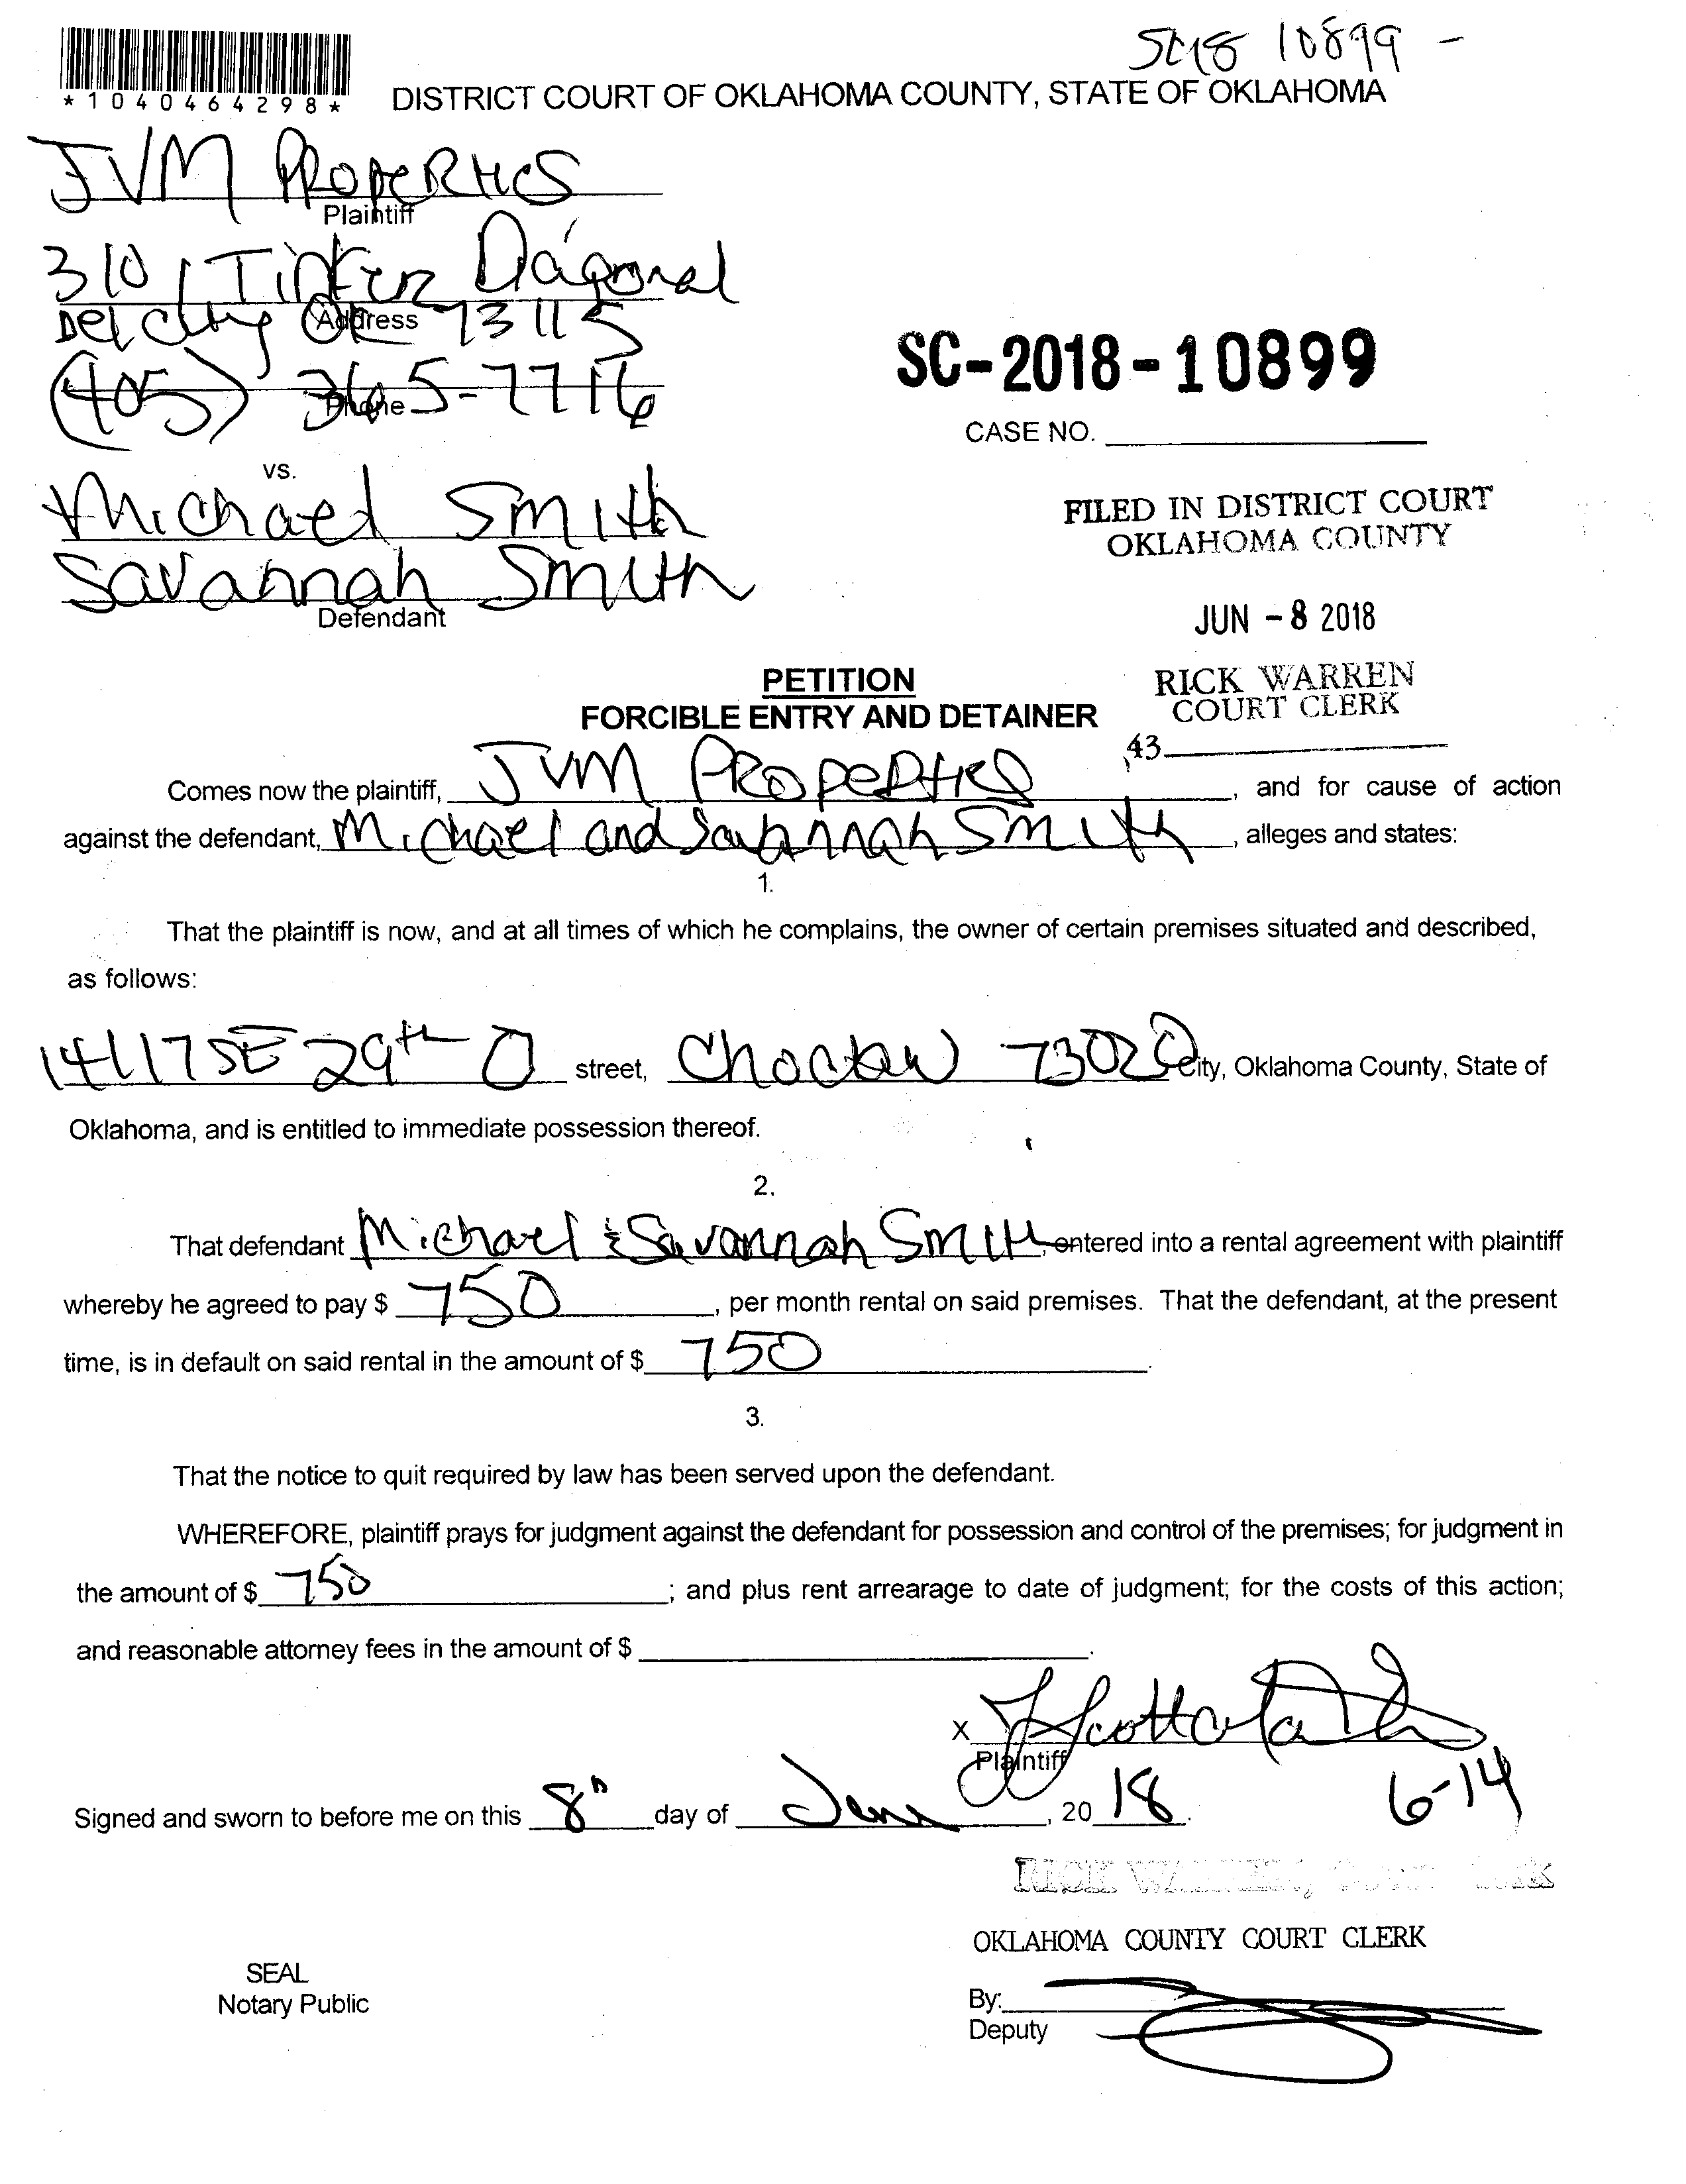 SC18 10899 -
*1040464298*
DISTRICT COURT OF OKLAHOMA COUNTY, STATE OF OKLAHOMA
JVM Properties
Plaintiff
3101 Tinker Diagonal
Address
Del City OK 73115
(405) 365-7716
Phone
SC-2018-10899
CASE NO.
vs.
Michael Smith
Savannah Smith
Defendant
FILED IN DISTRICT COURT
OKLAHOMA COUNTY
JUN - 8 2018
RICK WARREN
COURT CLERK
43
PETITION
FORCIBLE ENTRY AND DETAINER
Comes now the plaintiff, JVM Properties, and for cause of action
against the defendant, Michael and Savannah Smith, alleges and states:
1.
That the plaintiff is now, and at all times of which he complains, the owner of certain premises situated and described,
as follows:
14117 SE 29th O street, Choctaw 73020 City, Oklahoma County, State of
Oklahoma, and is entitled to immediate possession thereof.
2.
That defendant Michael & Savannah Smith, entered into a rental agreement with plaintiff
whereby he agreed to pay $ 750, per month rental on said premises. That the defendant, at the present
time, is in default on said rental in the amount of $ 750.
3.
That the notice to quit required by law has been served upon the defendant.
WHEREFORE, plaintiff prays for judgment against the defendant for possession and control of the premises; for judgment in
the amount of $ 750; and plus rent arrearage to date of judgment; for the costs of this action;
and reasonable attorney fees in the amount of $ .
X
Plaintiff
Signed and sworn to before me on this 8th day of June, 20 18.
6-14
RICK WARREN, Court Clerk
OKLAHOMA COUNTY COURT CLERK
SEAL
Notary Public
By:
Deputy